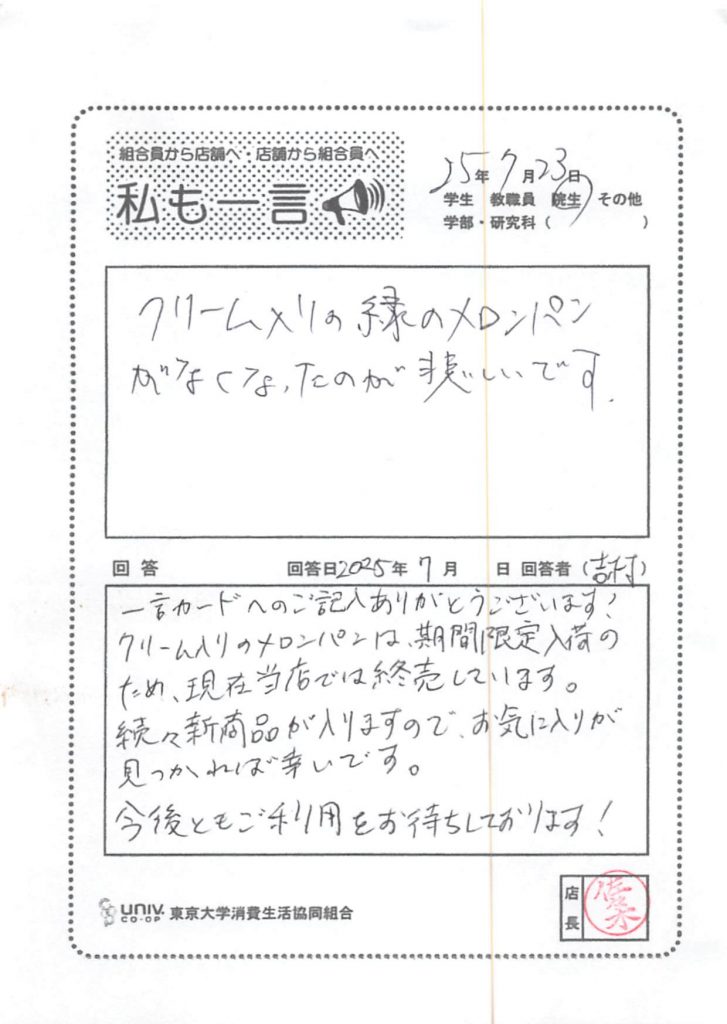 組合員から店舗へ・店舗から組合員へ
私も一言
25年7月23日
学生 教職員 院生 その他
学部・研究科( )
クリーム入りの緑のメロンパン
がなくなったのが悲しいです.
回答 回答日2025年7月 日 回答者(吉村)
一言カードへのご記入ありがとうございます!
クリーム入りのメロンパンは、期間限定入荷の
ため、現在当店では終売しています。
続々新商品が入りますので、お気に入りが
見つかれば幸いです。
今後ともご利用をお待ちしております!
UNIV. CO-OP 東京大学消費生活協同組合
店長 佐々木